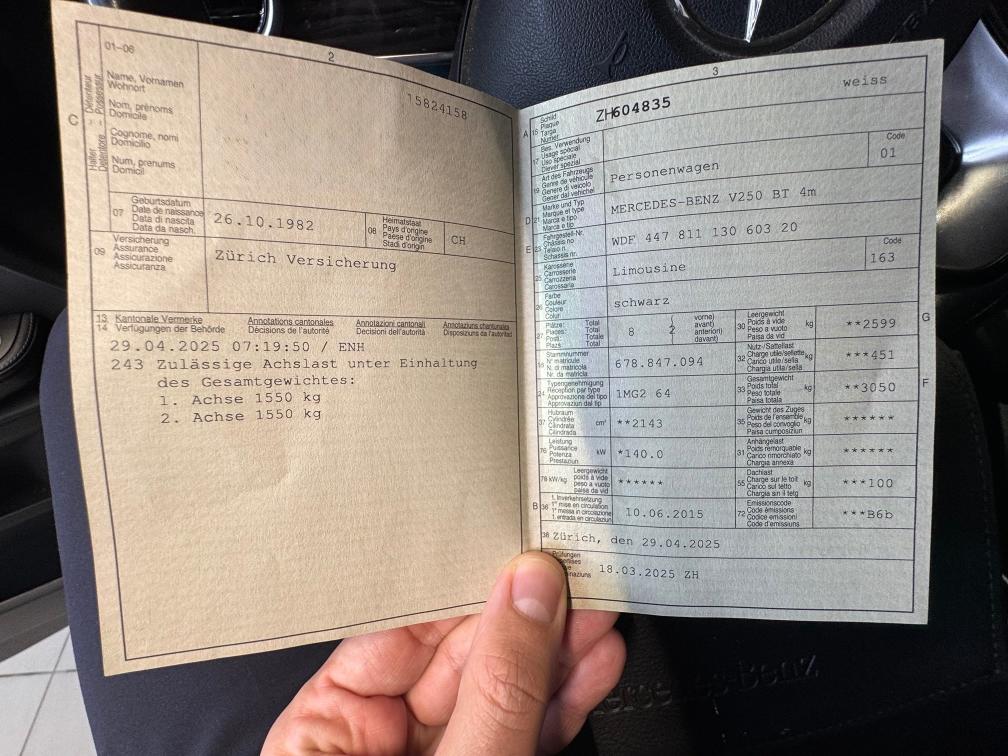 2
01–06
Name, Vornamen
Wohnort
Nom, prénoms
Domicile
Cognome, nomi
Domicilio
Num, prenums
Domicil
Détenteur
Possessur
Halter
Detentore
C
15824158
07
Geburtsdatum
Date de naissance
Data di nascita
Data da nasch.
26.10.1982
08
Heimatstaat
Pays d'origine
Paese d'origine
Stadi d'origin
CH
09
Versicherung
Assurance
Assicurazione
Assicuranza
Zürich Versicherung
13 Kantonale Vermerke Annotations cantonales Annotazioni cantonali Annotaziuns chantunalas
14 Verfügungen der Behörde Décisions de l'autorité Decisioni dell'autorità Disposiziuns da l'autoritad
29.04.2025 07:19:50 / ENH
243 Zulässige Achslast unter Einhaltung
des Gesamtgewichtes:
1. Achse 1550 kg
2. Achse 1550 kg
3
weiss
A 15
Schild
Plaque
Targa
Numer
ZH604835
17
Bes. Verwendung
Usage spécial
Uso speciale
Diever spezial
Code
01
19
Art des Fahrzeugs
Genre de véhicule
Genere di veicolo
Gener dal vehichel
Personenwagen
D 21
Marke und Typ
Marque et type
Marca e tipo
Marca e tip
MERCEDES-BENZ V250 BT 4m
E 23
Fahrgestell-Nr.
Châssis no
Telaio n.
Schassis nr.
WDF 447 811 130 603 20
25
Karosserie
Carrosserie
Carrozzeria
Carossaria
Limousine
Code
163
26
Farbe
Couleur
Colore
Colur
schwarz
27
Plätze: Total
Places: Total
Posti: Totale
Plazs: Total
8
( vorne)
avant)
anteriori)
davant)
2
30
Leergewicht
Poids à vide
Peso a vuoto
Paisa da vid
kg
**2599
G
18
Stammnummer
N° matricule
N. di matricola
Nr. da matricla
678.847.094
32
Nutz-/Sattellast
Charge utile/sellette
Carico utile/sella
Chargia utila/sella
kg
***451
24
Typengenehmigung
Réception par type
Approvazione del tipo
Approvaziun dal tip
1MG2 64
33
Gesamtgewicht
Poids total
Peso totale
Paisa totala
kg
**3050
F
37
Hubraum
Cylindrée
Cilindrata
Cilindrada
cm³
**2143
35
Gewicht des Zuges
Poids de l'ensemble
Peso del convoglio
Paisa cumposiziun
kg
******
76
Leistung
Puissance
Potenza
Prestaziun
kW
*140.0
31
Anhängelast
Poids remorquable
Carico rimorchiato
Chargia annexa
kg
******
78 kW/kg
Leergewicht
poids à vide
peso a vuoto
paisa da vid
******
55
Dachlast
Charge sur le toit
Carico sul tetto
Chargia sin il tetg
kg
***100
B 36
1. Inverkehrsetzung
1re mise en circulation
1a messa in circolazione
1. entrada en circulaziun
10.06.2015
72
Emissionscode
Code émissions
Codice emissioni
Code d'emissiuns
***B6b
38 Zürich, den 29.04.2025
Prüfungen
18.03.2025 ZH
Mercedes-Benz